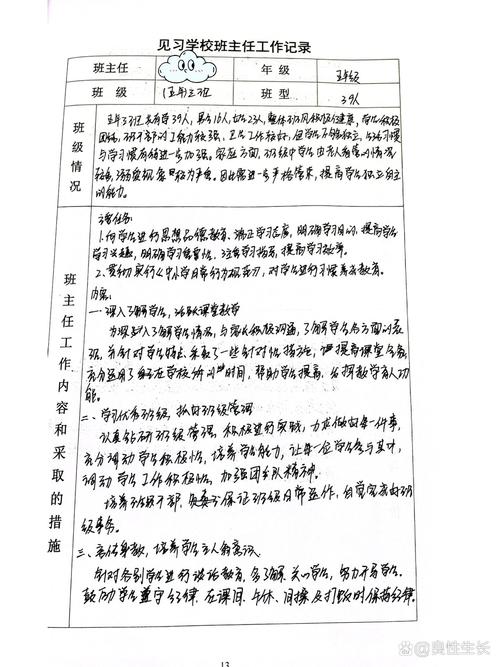 见习学校班主任工作记录
班主任 年级 五年级
班级 (五年)三班 班型 39人
班级情况
五年3班共有学生39人,男生16人,女生23人,整体班风积极健康,学生积极
团结,班干部的工作能力较强,卫生工作较好,但学生不够独立,生活习惯
与学习习惯有待进一步加强。家庭方面,班级中学生由老人看管的情况
较多,溺爱现象较为严重。因此需进一步严格管束,提高学生独立自主
的能力。
班主任工作内容和采取的措施
主要任务:
1.向学生进行思想品德教育,端正学习态度,明确学习目的,提高学生
学习兴趣,明确学习重要性,注重学习指导,提高学习效率。
2.贯彻实行《中小学日常行为规范》,对学生进行习惯养成教育。
内容:
一、深入了解学生,活跃课堂教学
为深入了解学生情况,与家长积极沟通,了解学生各方面的表
现,并针对学生特点采取了一些针对性措施,提高课堂全务,
充分运用了在学校的时间,帮助学生提高,发挥教学育人功
能。
二、学习优秀班级,抓好班级管理
认真钻研班级管理,积极进行实践,力求做好每一件事,
充分调动学生积极性,培养学生能力,让每一位学生参与其中,
调动学生工作积极性,加强团队精神。
培养班级干部,保证班级日常运作,自觉完成班
级事务。
三、言传身教,培养学生主人翁意识
针对各别学生进行谈话教育,多了解、关心学生,努力开导学生,
鼓励学生遵守纪律,在课间、午休、间操及打饭时保持纪律。
13
@奥性生长